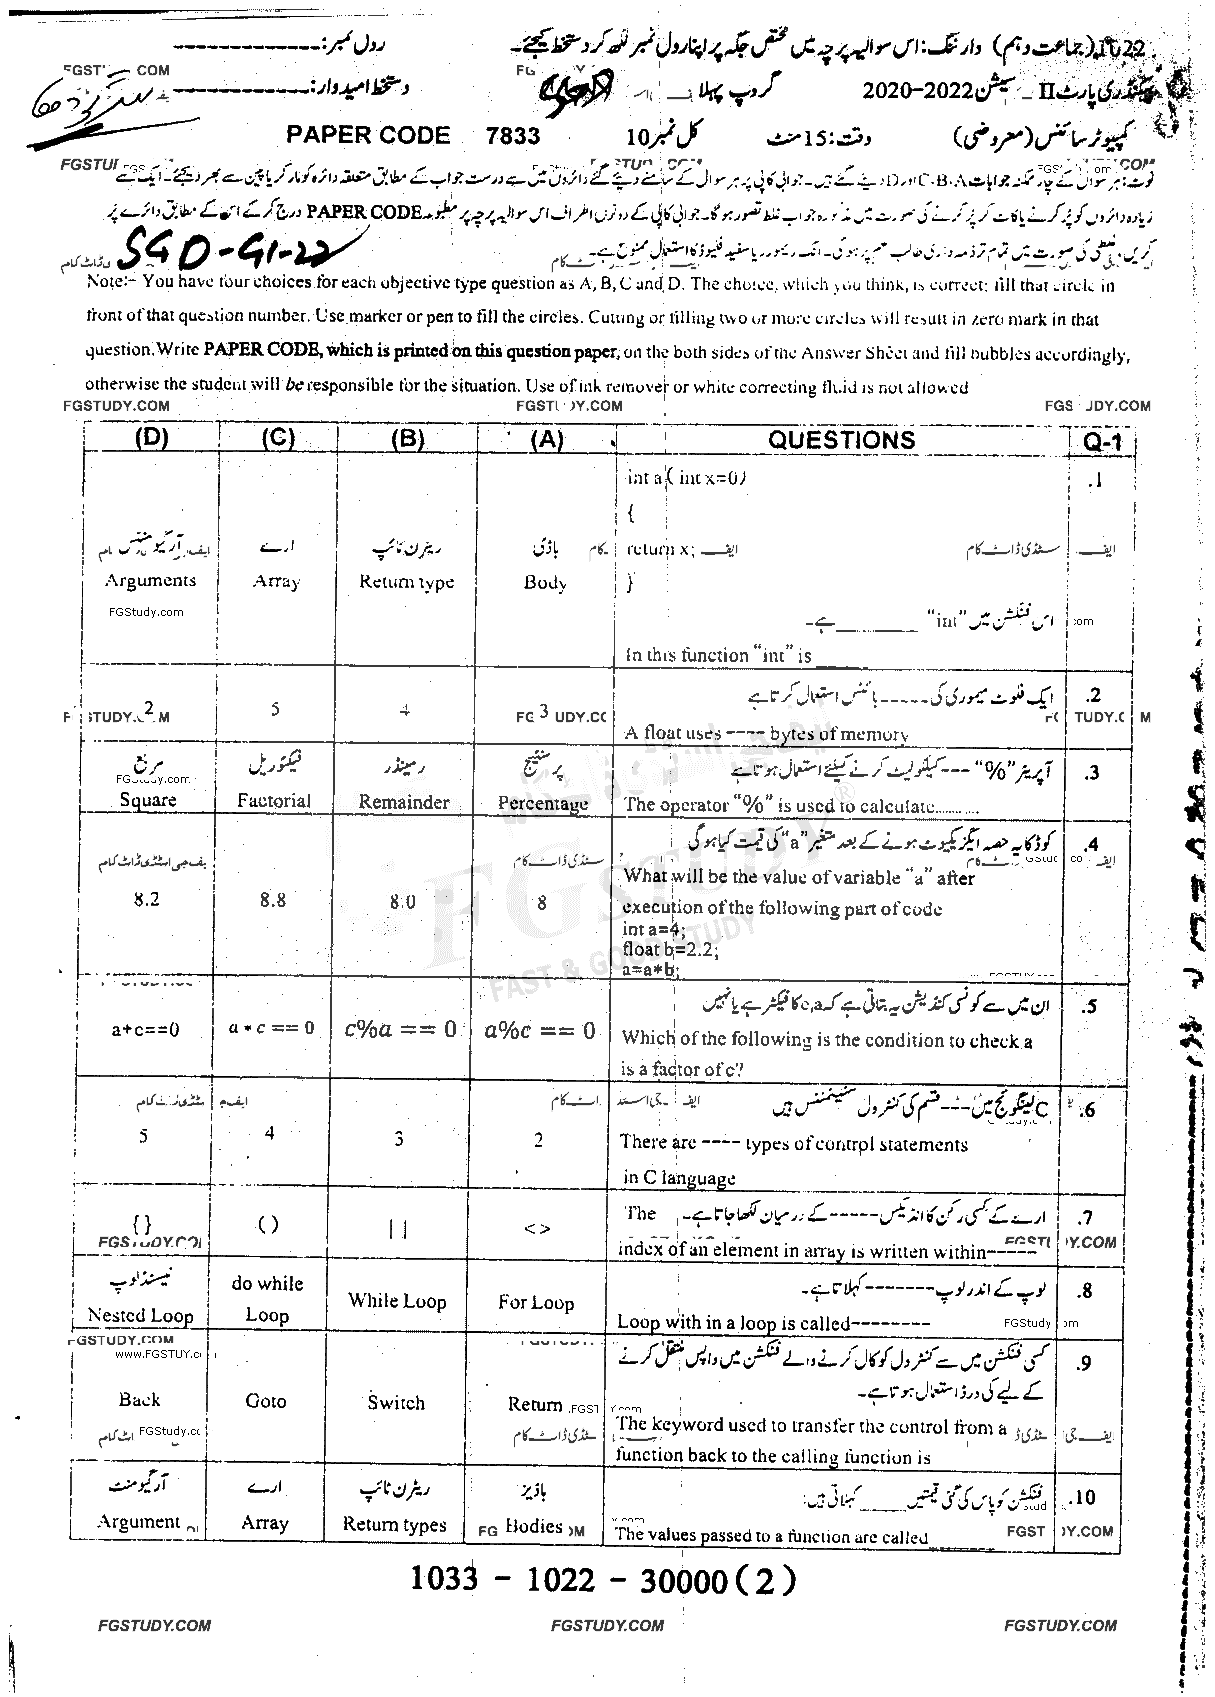 رول نمبر:
1022 (جماعت دہم) وارننگ: اس سوالیہ پرچہ میں مختص جگہ پر اپنا رول نمبر لکھ کر دستخط کیجئے۔
دستخط امیدوار:
گروپ پہلا
سیکنڈری پارٹ II ۔ سیشن 2022-2020
PAPER CODE 7833
کل نمبر 10
وقت: 15 منٹ
کمپیوٹر سائنس (معروضی)
نوٹ: ہر سوال کے چار ممکنہ جوابات C، B، A اور D دیئے گئے ہیں۔ جوابی کاپی پر ہر سوال کے سامنے دیئے گئے دائروں میں سے درست جواب کے مطابق متعلقہ دائرہ کو مارکر یا پین سے بھر دیجئے۔ ایک سے
زیادہ دائروں کو پُر کرنے یا کاٹ کر پُر کرنے کی صورت میں مذکورہ جواب غلط تصور ہو گا۔ جوابی کاپی کے دونوں اطراف اس سوالیہ پرچہ پر مطبوعہ PAPER CODE درج کر کے اس کے مطابق دائرے پر
کریں، غلطی کی صورت میں تمام تر ذمہ داری طالب علم پر ہو گی۔ انک ریموور یا سفید فلیوڈ کا استعمال ممنوع ہے۔
SGD-G1-22
Note:- You have four choices for each objective type question as A, B, C and D. The choice, which you think, is correct; fill that circle in
front of that question number. Use marker or pen to fill the circles. Cutting or filling two or more circles will result in zero mark in that
question. Write PAPER CODE, which is printed on this question paper, on the both sides of the Answer Sheet and fill bubbles accordingly,
otherwise the student will be responsible for the situation. Use of ink remover or white correcting fluid is not allowed
FGSTUDY.COM
(D) (C) (B) (A) QUESTIONS Q-1
int a ( int x=0) .1
{
آرگیومنٹس ارے ریٹرن ٹائپ باڈی return x;
Arguments Array Return type Body }
FGStudy.com
اس فنکشن میں "int" ______ ہے۔
In this function "int" is ______
ایک فلوٹ میموری کی ----- بائٹس استعمال کرتا ہے .2
2 5 4 3
A float uses ---- bytes of memory
مربع فیکٹوریل ریمینڈر پرسنٹیج آپریٹر "%" --- کیلکولیٹ کرنے کیلئے استعمال ہوتا ہے .3
Square Factorial Remainder Percentage The operator "%" is used to calculate..........
کوڈ کا یہ حصہ ایگزیکیوٹ ہونے کے بعد متغیر "a" کی قیمت کیا ہو گی .4
What will be the value of variable "a" after
8.2 8.8 8.0 8 execution of the following part of code
int a=4;
float b=2.2;
a=a*b;
ان میں سے کونسی کنڈیشن یہ بتاتی ہے کہ c،a کا فیکٹر ہے یا نہیں .5
a+c==0 a * c == 0 c%a == 0 a%c == 0 Which of the following is the condition to check a
is a factor of c?
C لینگوئج میں --- قسم کی کنٹرول سٹیٹمنٹس ہیں .6
5 4 3 2 There are ---- types of control statements
in C language
ارے کے کسی رکن کا انڈیکس ----- کے درمیان لکھا جاتا ہے۔ The .7
{} () [ ] <>
index of an element in array is written within-----
نیسٹڈ لوپ لوپ کے اندر لوپ ------- کہلاتا ہے۔ .8
Nested Loop do while Loop While Loop For Loop Loop with in a loop is called--------
کسی فنکشن میں سے کنٹرول کو کال کرنے والے فنکشن میں واپس منتقل کرنے .9
کے لیے کی ورڈ استعمال ہوتا ہے۔
Back Goto Switch Return
The keyword used to transfer the control from a
function back to the calling function is
آرگیومنٹ ارے ریٹرن ٹائپ باڈیز فنکشن کو پاس کی گئی قیمتیں _____ کہلاتی ہیں: .10
Argument Array Return types Bodies The values passed to a function are called ______
1033 - 1022 - 30000 (2)
FGSTUDY.COM FGSTUDY.COM FGSTUDY.COM
FGSTUDY
FAST & GOOD STUDY